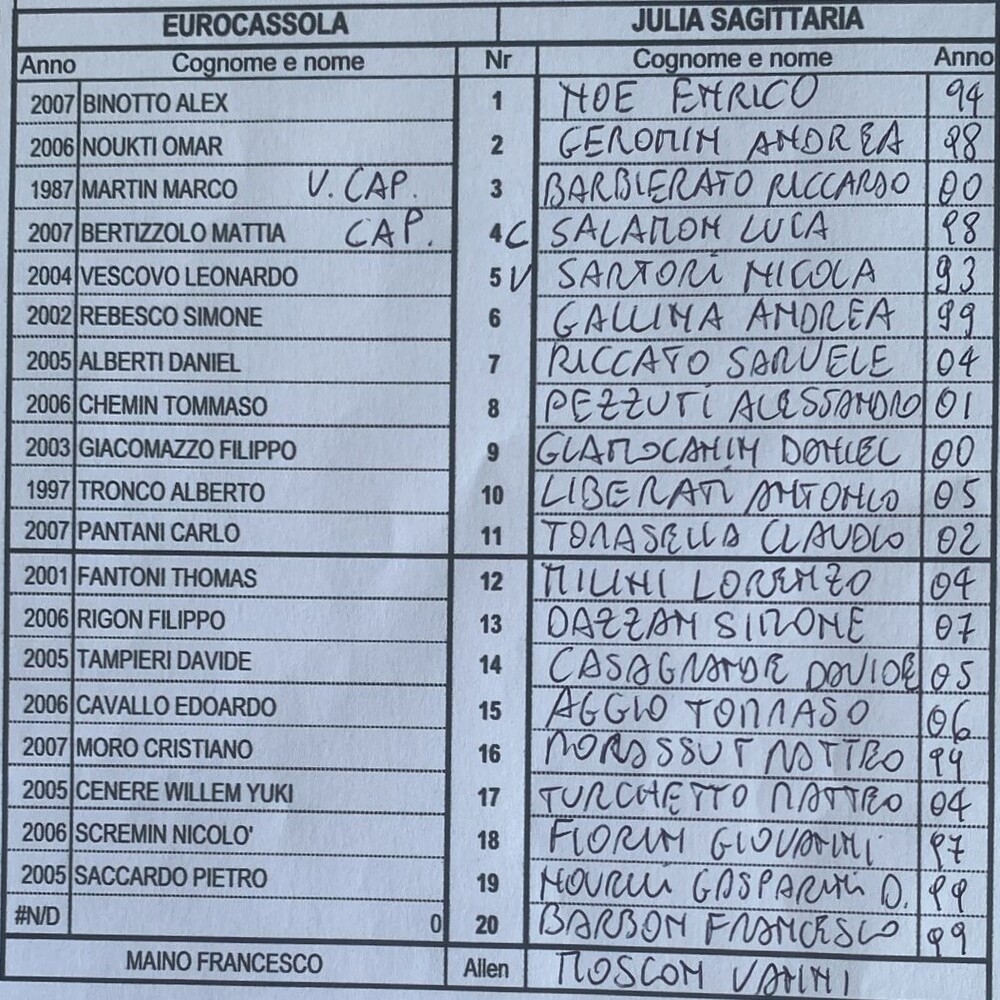 EUROCASSOLA JULIA SAGITTARIA
Anno Cognome e nome Nr Cognome e nome Anno
2007 BINOTTO ALEX 1 NOE ENRICO 94
2006 NOUKTI OMAR 2 GERONIN ANDREA 98
1987 MARTIN MARCO V. CAP. 3 BARBIERATO RICCARDO 00
2007 BERTIZZOLO MATTIA CAP. 4 C SALAMON LUCA 98
2004 VESCOVO LEONARDO 5 V SARTORI NICOLA 93
2002 REBESCO SIMONE 6 GALLINA ANDREA 99
2005 ALBERTI DANIEL 7 RICCATO SAMUELE 04
2006 CHEMIN TOMMASO 8 PEZZUTI ALESSANDRO 01
2003 GIACOMAZZO FILIPPO 9 GIAMOCANIN DANIEL 00
1997 TRONCO ALBERTO 10 LIBERATI ANTONIO 05
2007 PANTANI CARLO 11 TOMASELLA CLAUDIO 02
2001 FANTONI THOMAS 12 MILINI LORENZO 04
2006 RIGON FILIPPO 13 DAZZAN SIMONE 07
2005 TAMPIERI DAVIDE 14 CASAGRANDE DAVIDE 05
2006 CAVALLO EDOARDO 15 AGGIO TOMMASO 06
2007 MORO CRISTIANO 16 MORASSUT MATTEO 94
2005 CENERE WILLEM YUKI 17 TURCHETTO MATTEO 04
2006 SCREMIN NICOLO' 18 FIORIN GIOVANNI 97
2005 SACCARDO PIETRO 19 GASPARINI D. 99
#N/D 0 20 BARBON FRANCESCO 99
MAINO FRANCESCO Allen MOSCON VANNI